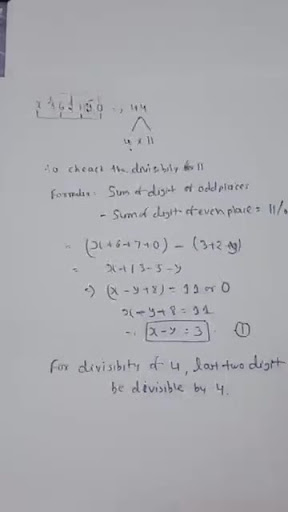 44
4 x 11
To cheack the divisibility for 11
Formula: Sum of digit of odd places
- Sum of digit of even place = 11/
= (x+6+7+0) - (3+2+y)
= x+13-5-y
=> (x-y+8) = 11 or 0
x-y+8 = 11
∴ x-y = 3 ①
For divisibity of 4, last two digit
be divisible by 4.